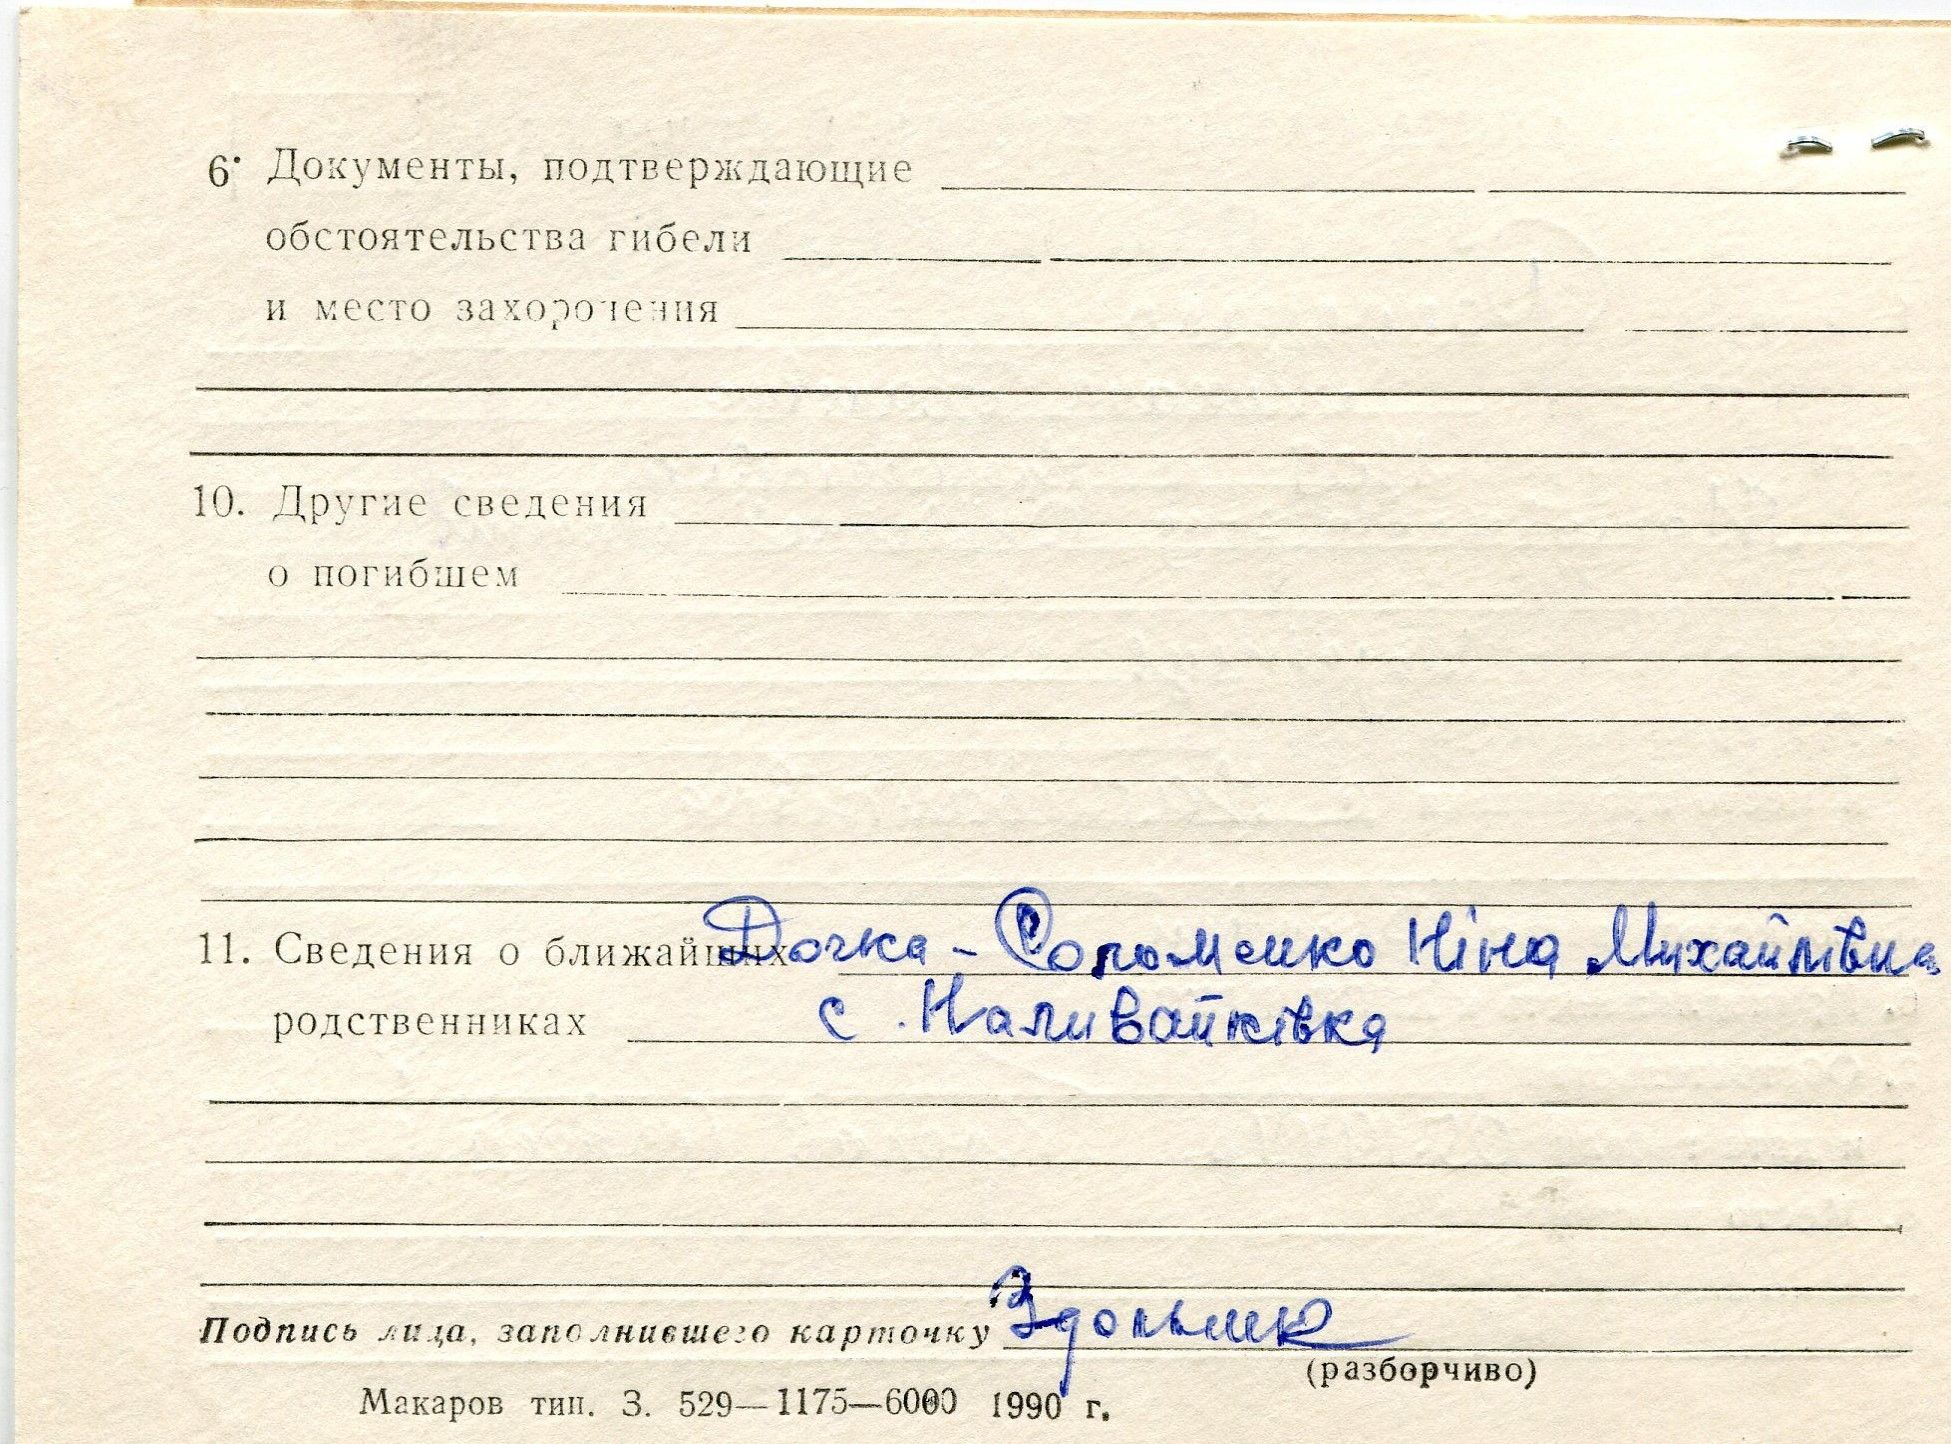 6. Документы, подтверждающие
обстоятельства гибели
и место захоронения
10. Другие сведения
о погибшем
11. Сведения о ближайших Дочка - Соломенко Ніна Михайлівна
родственниках с. Наливайківка
Подпись лица, заполнившего карточку
(разборчиво)
Макаров тип. З. 529—1175—6000 1990 г.